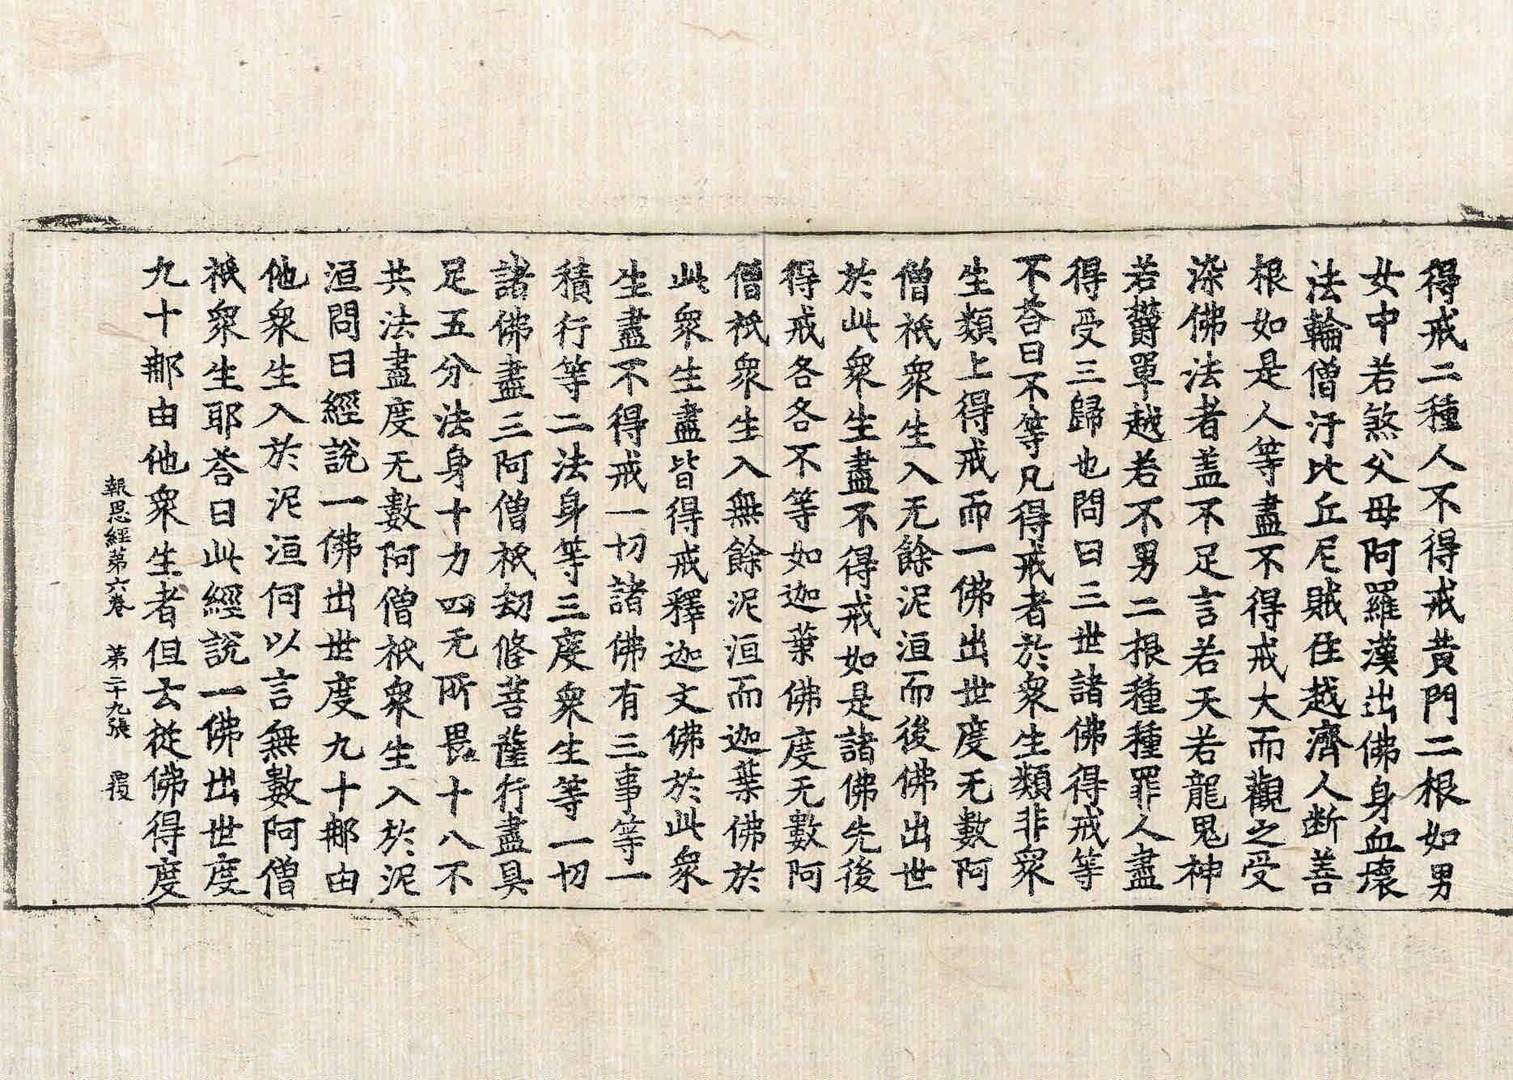 得戒二種人不得戒黄門二根如男
女中若煞父母阿羅漢出佛身血壞
法輪僧汙比丘尼賊住越濟人断善
根如是人等盡不得戒大而觀之受
染佛法者盖不足言若天若龍鬼神
若欝單越若不男二根種種罪人盡
得受三歸也問曰三世諸佛得戒等
不荅曰不等凡得戒者於衆生類非衆
生類上得戒而一佛出世度无數阿
僧祇衆生入无餘泥洹而後佛出世
於此衆生盡不得戒如是諸佛先後
得戒各各不等如迦葉佛度无數阿
僧祇衆生入無餘泥洹而迦葉佛於
此衆生盡皆得戒釋迦文佛於此衆
生盡不得戒一切諸佛有三事等一
積行等二法身等三度衆生等一切
諸佛盡三阿僧祇劫修菩薩行盡具
足五分法身十力四无所畏十八不
共法盡度无數阿僧祇衆生入於泥
洹問曰經說一佛出世度九十那由
他衆生入於泥洹何以言無數阿僧
祇衆生耶荅曰此經說一佛出世度
九十那由他衆生者但去從佛得度
報恩經第六卷　第二十九張　覆